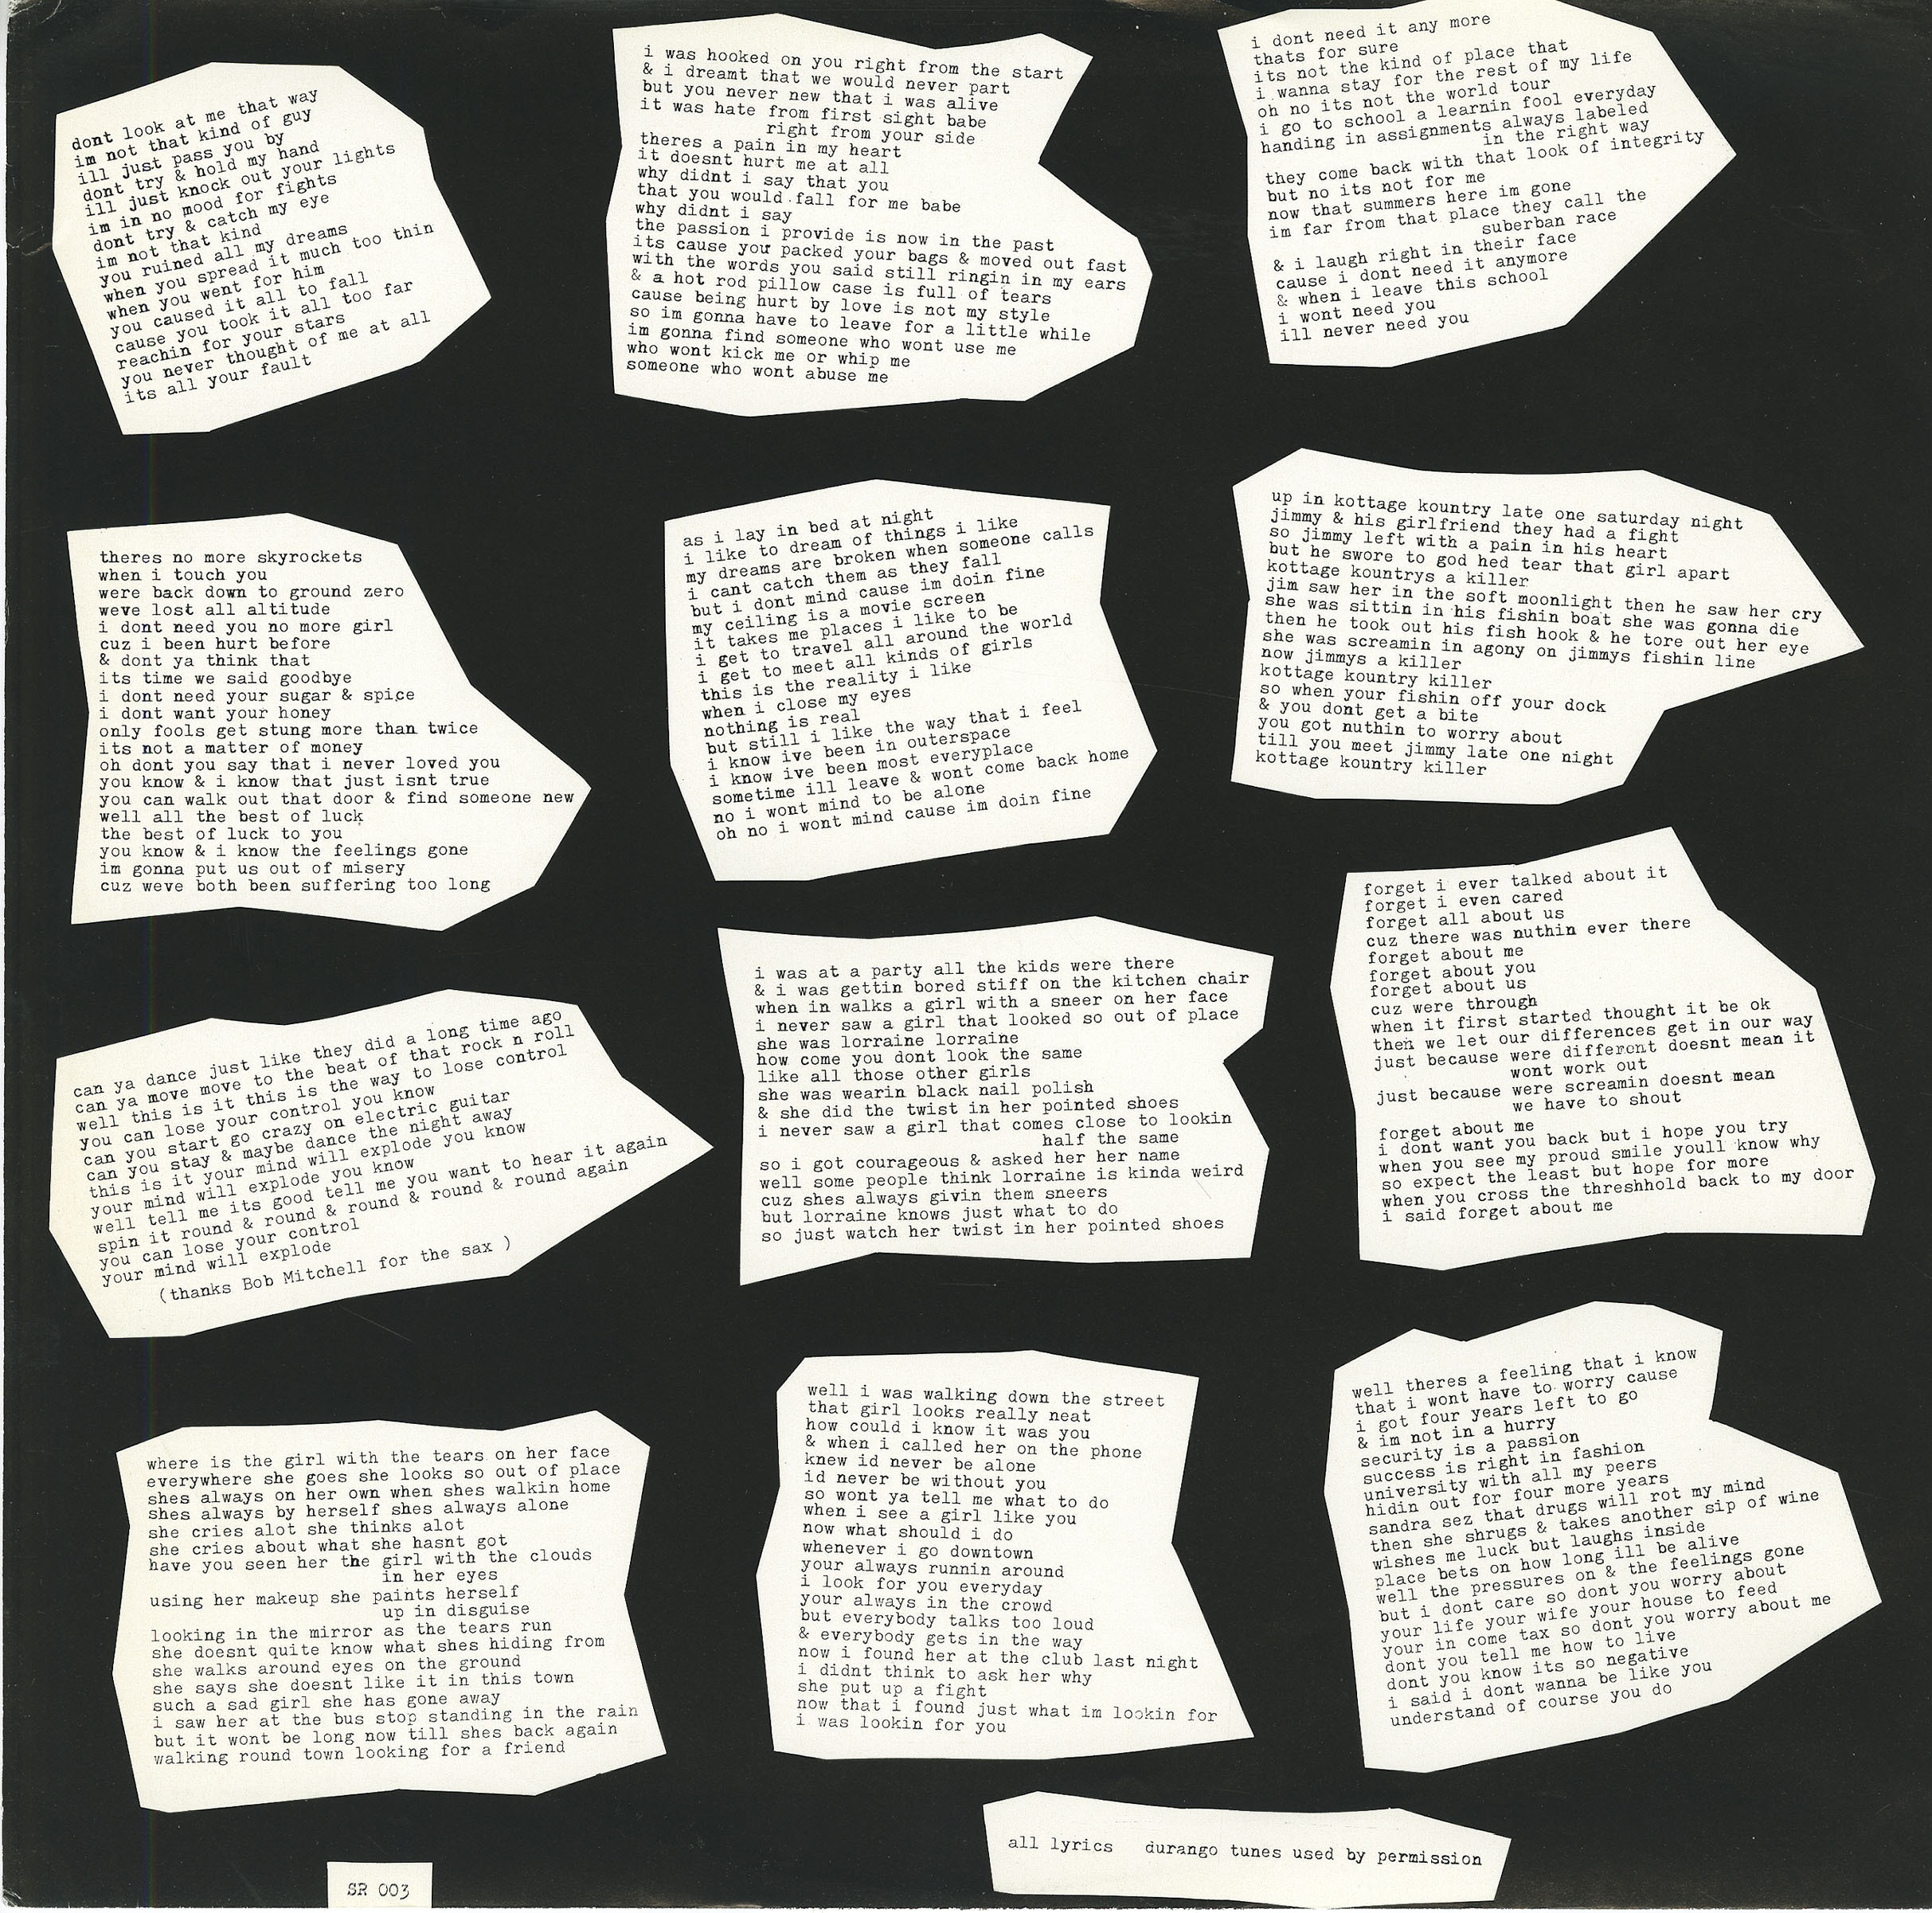 dont look at me that way
im not that kind of guy
ill just pass you by
dont try & hold my hand
ill just knock out your lights
im in no mood for fights
dont try & catch my eye
im not that kind
you ruined all my dreams
when you spread it much too thin
when you went for him
you caused it all to fall
cause you took it all too far
reachin for your stars
you never thought of me at all
its all your fault
i was hooked on you right from the start
& i dreamt that we would never part
but you never new that i was alive
it was hate from first sight babe
right from your side
theres a pain in my heart
it doesnt hurt me at all
why didnt i say that you
that you would fall for me babe
why didnt i say
the passion i provide is now in the past
its cause you packed your bags & moved out fast
with the words you said still ringin in my ears
& a hot rod pillow case is full of tears
cause being hurt by love is not my style
so im gonna have to leave for a little while
im gonna find someone who wont use me
who wont kick me or whip me
someone who wont abuse me
i dont need it any more
thats for sure
its not the kind of place that
i wanna stay for the rest of my life
oh no its not the world tour
i go to school a learnin fool everyday
handing in assignments always labeled
in the right way
they come back with that look of integrity
but no its not for me
now that summers here im gone
im far from that place they call the
suberban race
& i laugh right in their face
cause i dont need it anymore
& when i leave this school
i wont need you
ill never need you
theres no more skyrockets
when i touch you
were back down to ground zero
weve lost all altitude
i dont need you no more girl
cuz i been hurt before
& dont ya think that
its time we said goodbye
i dont need your sugar & spice
i dont want your honey
only fools get stung more than twice
its not a matter of money
oh dont you say that i never loved you
you know & i know that just isnt true
you can walk out that door & find someone new
well all the best of luck
the best of luck to you
you know & i know the feelings gone
im gonna put us out of misery
cuz weve both been suffering too long
as i lay in bed at night
i like to dream of things i like
my dreams are broken when someone calls
i cant catch them as they fall
but i dont mind cause im doin fine
my ceiling is a movie screen
it takes me places i like to be
i get to travel all around the world
i get to meet all kinds of girls
this is the reality i like
when i close my eyes
nothing is real
but still i like the way that i feel
i know ive been in outerspace
i know ive been most everyplace
sometime ill leave & wont come back home
no i wont mind to be alone
oh no i wont mind cause im doin fine
up in kottage kountry late one saturday night
jimmy & his girlfriend they had a fight
so jimmy left with a pain in his heart
but he swore to god hed tear that girl apart
kottage kountrys a killer
jim saw her in the soft moonlight then he saw her cry
she was sittin in his fishin boat she was gonna die
then he took out his fish hook & he tore out her eye
she was screamin in agony on jimmys fishin line
now jimmys a killer
kottage kountry killer
so when your fishin off your dock
& you dont get a bite
you got nuthin to worry about
till you meet jimmy late one night
kottage kountry killer
can ya dance just like they did a long time ago
can ya move move to the beat of that rock n roll
well this is it this is the way to lose control
you can lose your control you know
can you start go crazy on electric guitar
can you stay & maybe dance the night away
this is it your mind will explode you know
your mind will explode you know
well tell me its good tell me you want to hear it again
spin it round & round & round & round & round again
you can lose your control
your mind will explode
(thanks Bob Mitchell for the sax )
i was at a party all the kids were there
& i was gettin bored stiff on the kitchen chair
when in walks a girl with a sneer on her face
i never saw a girl that looked so out of place
she was lorraine lorraine
how come you dont look the same
like all those other girls
she was wearin black nail polish
& she did the twist in her pointed shoes
i never saw a girl that comes close to lookin
half the same
so i got courageous & asked her her name
well some people think lorraine is kinda weird
cuz shes always givin them sneers
but lorraine knows just what to do
so just watch her twist in her pointed shoes
forget i ever talked about it
forget i even cared
forget all about us
cuz there was nuthin ever there
forget about me
forget about you
forget about us
cuz were through
when it first started thought it be ok
then we let our differences get in our way
just because were different doesnt mean it
wont work out
just because were screamin doesnt mean
we have to shout
forget about me
i dont want you back but i hope you try
when you see my proud smile youll know why
so expect the least but hope for more
when you cross the threshhold back to my door
i said forget about me
where is the girl with the tears on her face
everywhere she goes she looks so out of place
shes always on her own when shes walkin home
shes always by herself shes always alone
she cries alot she thinks alot
she cries about what she hasnt got
have you seen her the girl with the clouds
in her eyes
using her makeup she paints herself
up in disguise
looking in the mirror as the tears run
she doesnt quite know what shes hiding from
she walks around eyes on the ground
she says she doesnt like it in this town
such a sad girl she has gone away
i saw her at the bus stop standing in the rain
but it wont be long now till shes back again
walking round town looking for a friend
well i was walking down the street
that girl looks really neat
how could i know it was you
& when i called her on the phone
knew id never be alone
id never be without you
so wont ya tell me what to do
when i see a girl like you
now what should i do
whenever i go downtown
your always runnin around
i look for you everyday
your always in the crowd
but everybody talks too loud
& everybody gets in the way
now i found her at the club last night
i didnt think to ask her why
she put up a fight
now that i found just what im lookin for
i was lookin for you
well theres a feeling that i know
that i wont have to worry cause
i got four years left to go
& im not in a hurry
security is a passion
success is right in fashion
university with all my peers
hidin out for four more years
sandra sez that drugs will rot my mind
then she shrugs & takes another sip of wine
wishes me luck but laughs inside
place bets on how long ill be alive
well the pressures on & the feelings gone
but i dont care so dont you worry about
your life your wife your house to feed
your in come tax so dont you worry about me
dont you tell me how to live
dont you know its so negative
i said i dont wanna be like you
understand of course you do
all lyrics durango tunes used by permission
SR 003